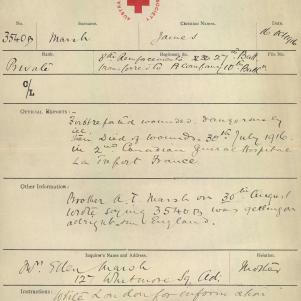 No. Surname. Christian Names. Date.
3540B Marsh James 16 Oct 1916
Rank. Regiment. File No.
Private 8th Reinforcements 27th Batt.
transferred to B Company 10th Battn
OFFICIAL REPORTS :—
First reported wounded. dangerously
ill.
Then Died of Wounds. 30th July 1916.
in 2nd Canadian General Hospital
Le Treport France
Other Information:
Brother A. T. Marsh on 30th August
wrote saying 3540B was getting on
alright in England.
Inquirer's Name and Address. Relationship.
Mrs. Ellen Marsh Mother
12 Whitmore Sq. Ad.
Instructions: Write London for information